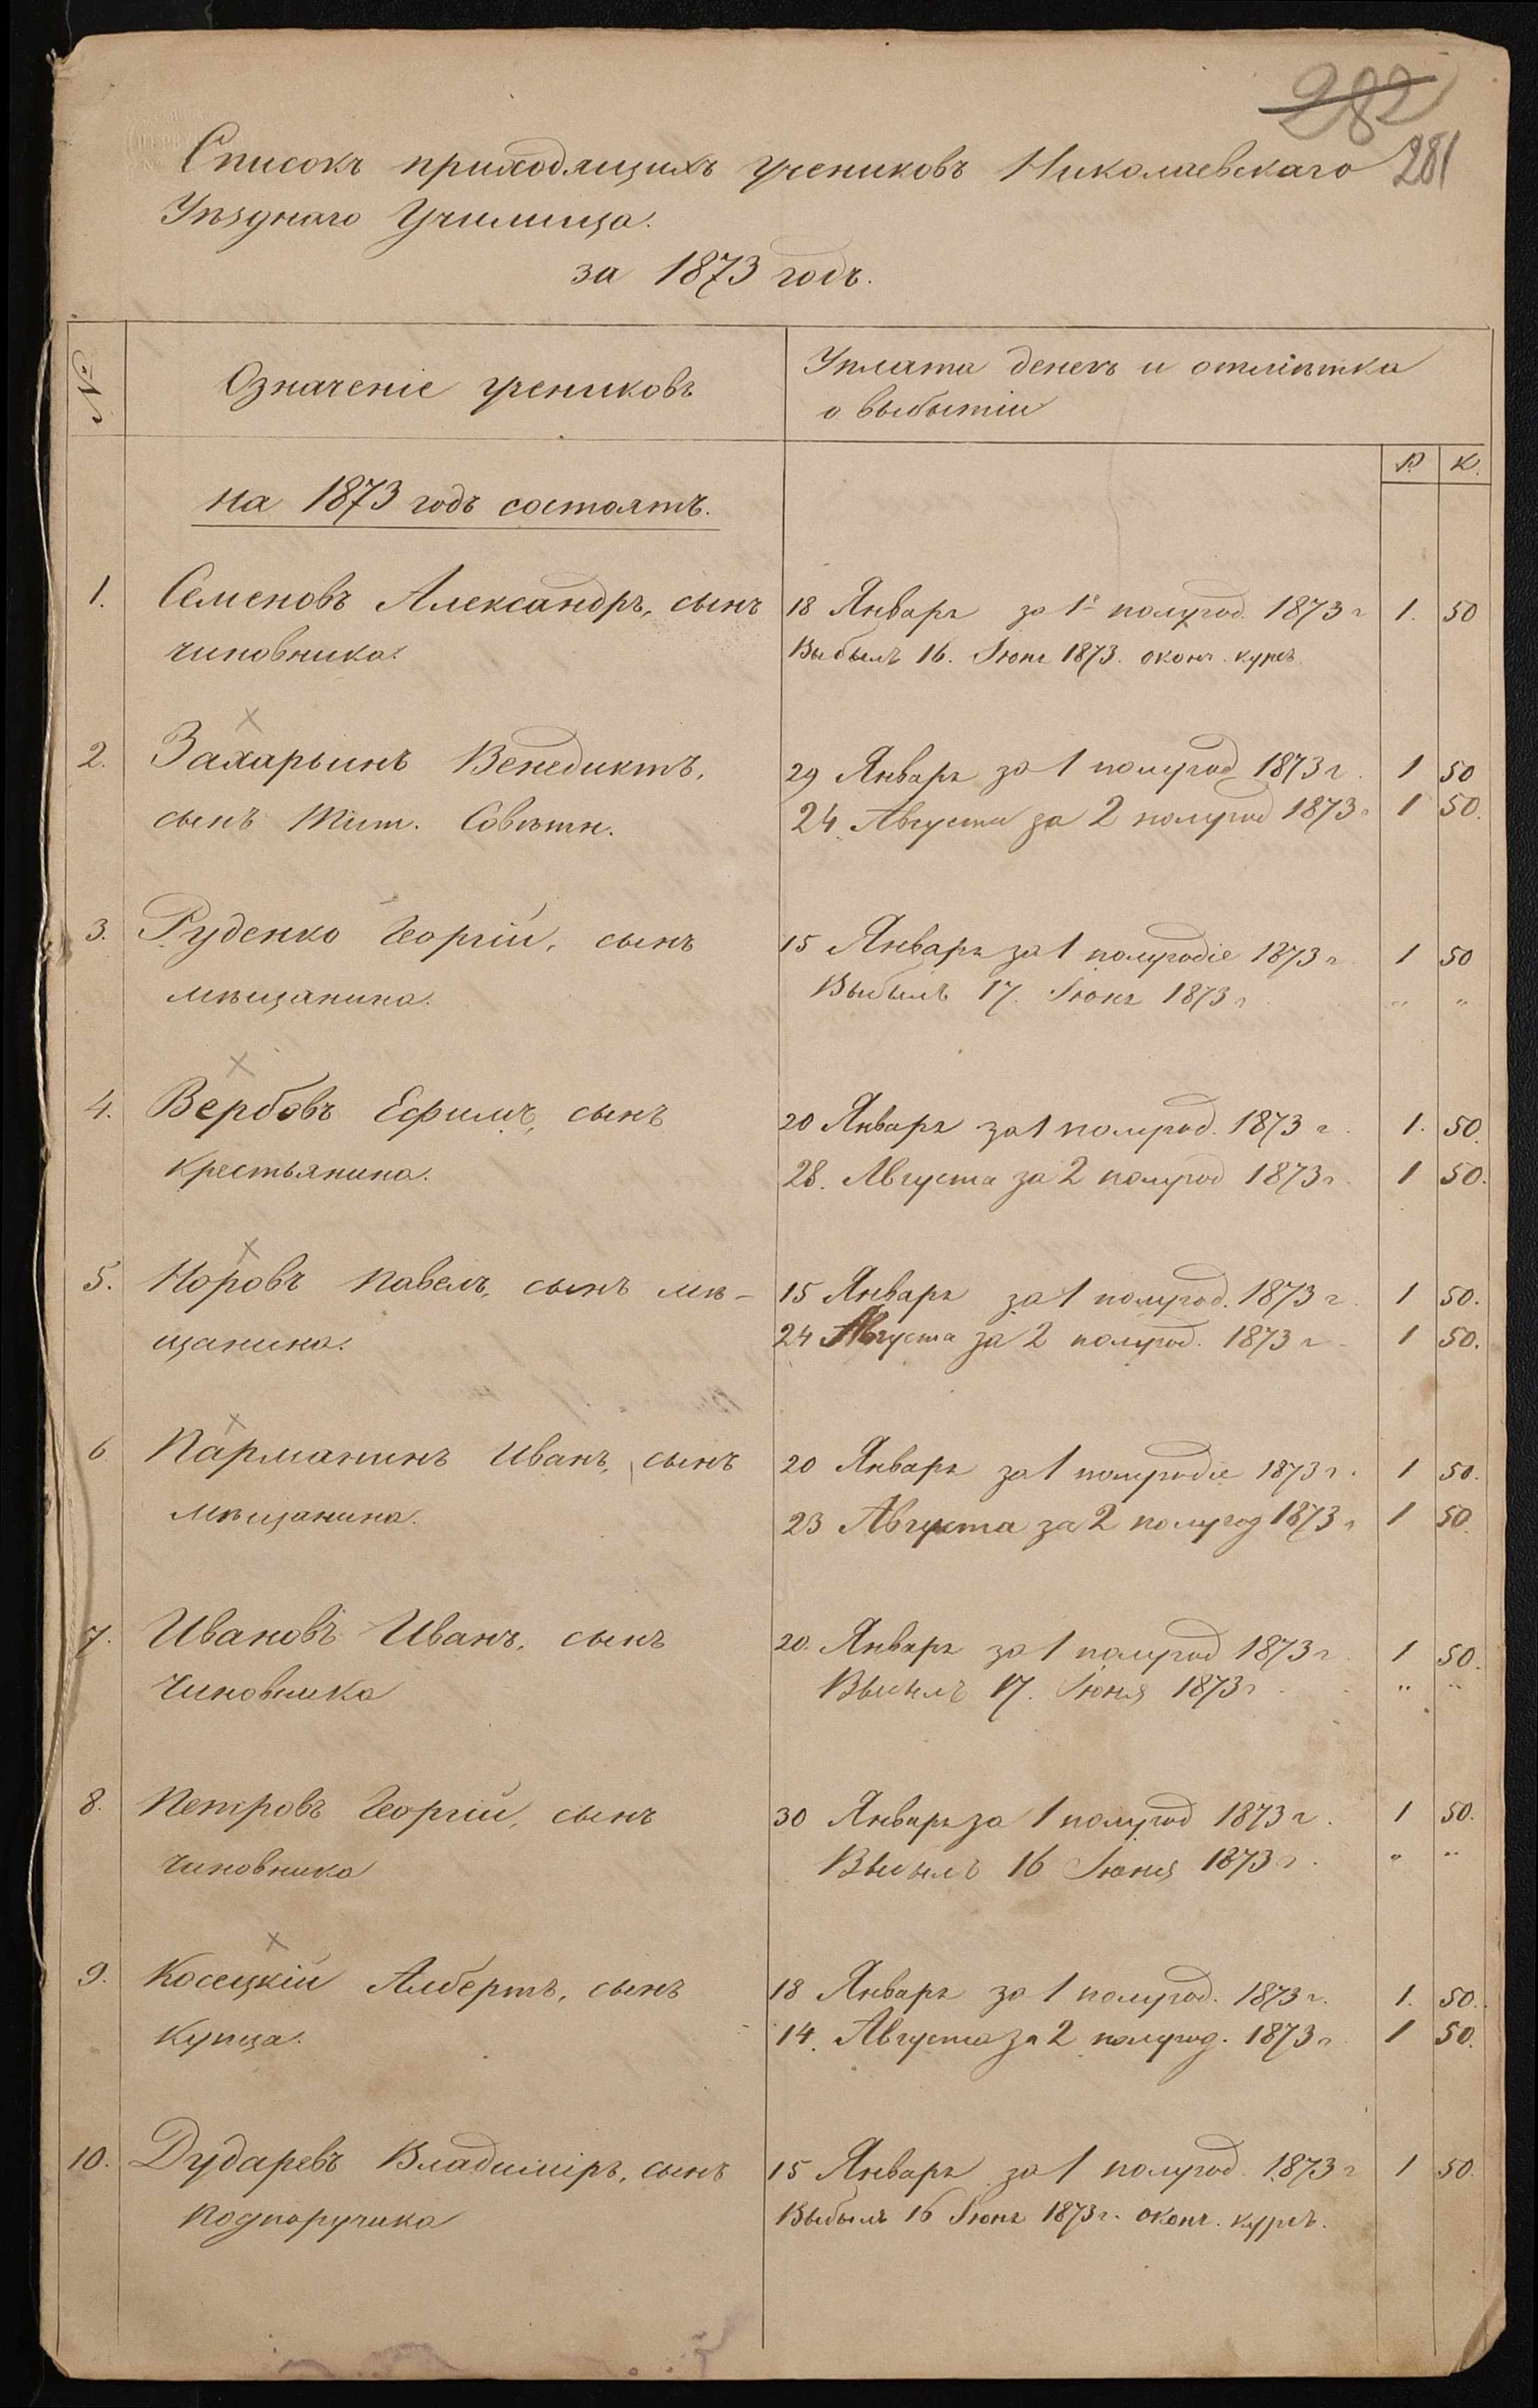 282
281
Списокъ приходящихъ учениковъ Николаевскаго
Уѣзднаго Училища.
за 1873 годъ.
№
Означеніе учениковъ
Уплата денегъ и отмѣтка
о выбытіи
Р. К.
на 1873 годъ состоятъ.
1. Семеновъ Александръ, сынъ 18 Января за 1е полугод. 1873 г 1. 50
чиновника. Выбылъ 16. Іюня 1873. оконч. курсъ.
2. Захарьинъ Венедиктъ, 29 Января за 1 полугод 1873 г. 1 50
сынъ Тит. Совѣтн. 24 Августа за 2 полугод 1873 г 1 50.
3. Руденко Георгій, сынъ 15 Января за 1 полугодіе 1873 г 1 50
мѣщанина. Выбылъ 17. Іюня 1873 г „ „
4. Вербовъ Ефимъ, сынъ 20 Января за 1 полугод. 1873 г. 1. 50.
крестьянина. 28. Августа за 2 полугод 1873 г. 1 50.
5. Норовъ Павелъ, сынъ мѣ- 15 Января за 1 полугод. 1873 г. 1 50.
щанина. 24 Августа за 2 полугод. 1873 г 1 50.
6. Парманинъ Иванъ, сынъ 20 Января за 1 полугодіе 1873 г. 1 50.
мѣщанина. 23 Августа за 2 полугод 1873 г 1 50.
7. Ивановъ Иванъ, сынъ 20. Января за 1 полугод 1873 г. 1 50.
Чиновника Выбылъ 17. Іюня 1873 г „ „
8. Петровъ Георгій, сынъ 30 Января за 1 полугод 1873 г. 1 50.
Чиновника Выбылъ 16 Іюня 1873 г. „ „
9. Косецкій Албертъ, сынъ 18 Января за 1 полугод. 1873 г. 1. 50.
Купца. 14. Августа за 2 полугод. 1873 г. 1 50.
10. Дударевъ Владиміръ, сынъ 15 Января за 1 полугод. 1873 г 1 50.
Подпоручика Выбылъ 16 Іюня 1873 г. оконч. курсъ.